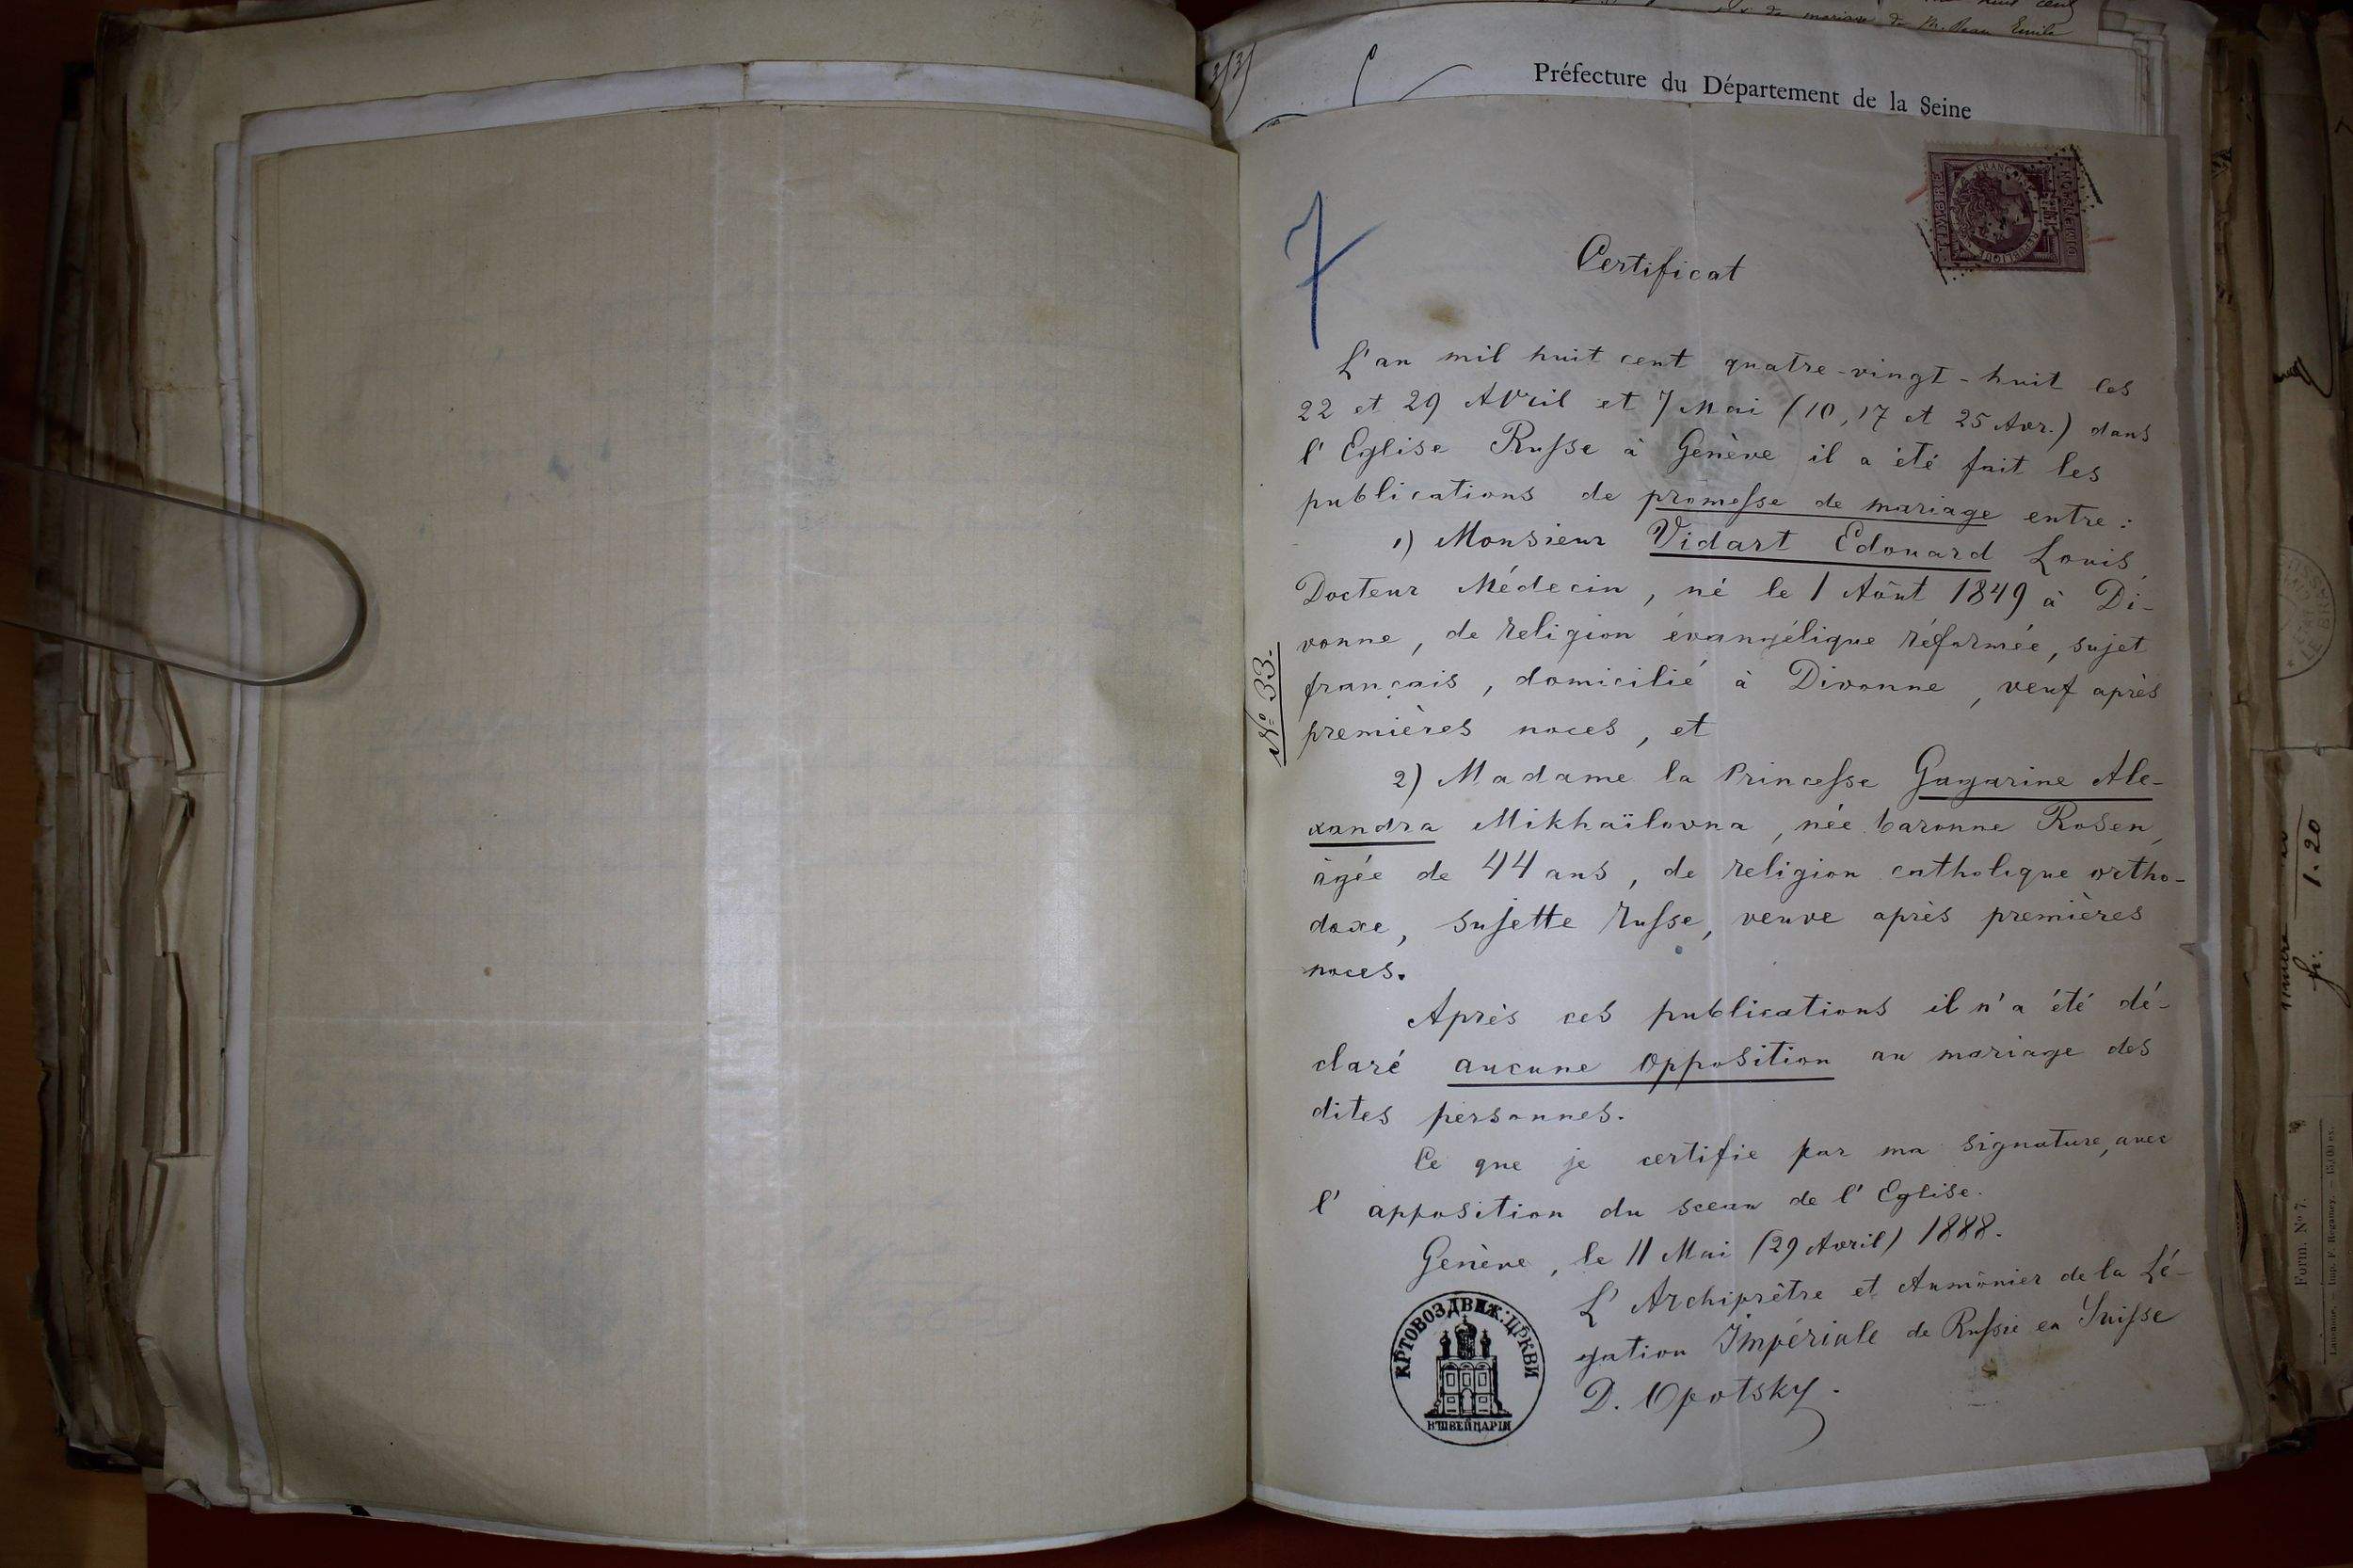 de mariage de M. Jean Emile
Préfecture du Département de la Seine
7
Certificat
L'an mil huit cent quatre-vingt-huit les
22 et 29 Avril et 7 Mai (10, 17 et 25 Avr.) dans
l'Eglise Russe à Genève il a été fait les
publications de promesse de mariage entre:
1) Monsieur Vidart Edouard Louis,
Docteur Médecin, né le 1 Août 1849 à Di-
vonne, de religion évangélique réformée, sujet
français, domicilié à Divonne, veuf après
premières noces, et
2) Madame la Princesse Gagarine Ale-
xandra Mikhaïlovna, née baronne Rosen,
âgée de 44 ans, de religion catholique ortho-
doxe, sujette russe, veuve après premières
noces.
Après ces publications il n'a été dé-
claré aucune opposition au mariage des
dites personnes.
Ce que je certifie par ma signature, avec
l'apposition du sceau de l'Eglise.
Genève, le 11 Mai (29 Avril) 1888.
L'Archiprêtre et Aumônier de la Lé-
gation Impériale de Russie en Suisse
D. Opotsky.
КРТОВОЗДВИЖ: ЦРКВИ
ВЪ ШВЕЙЦАРІИ
No 33.
fr. 1.20
Form. No 7.